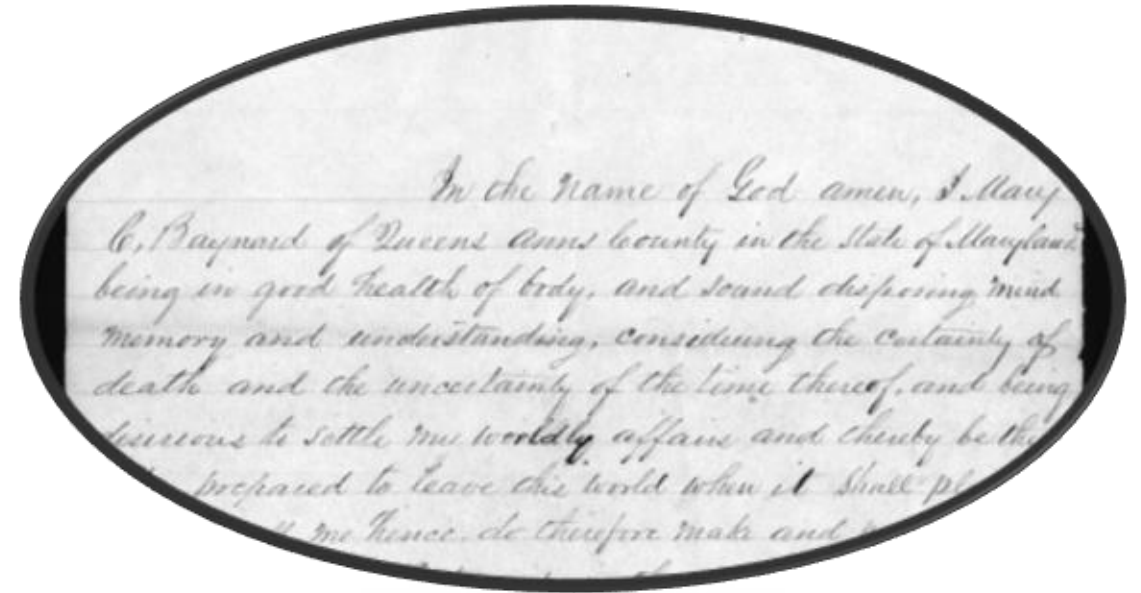 In the name of God amen, I Mary
C. Baynard of Queens anns County in the State of Maryland
being in good health of body, and sound disposing mind
memory and understanding, considering the certainty of
death and the uncertainty of the time thereof, and being
desireous to settle my worldly affairs and thereby be the
prepared to leave this world when it Shall pl
me hence do therefore make and